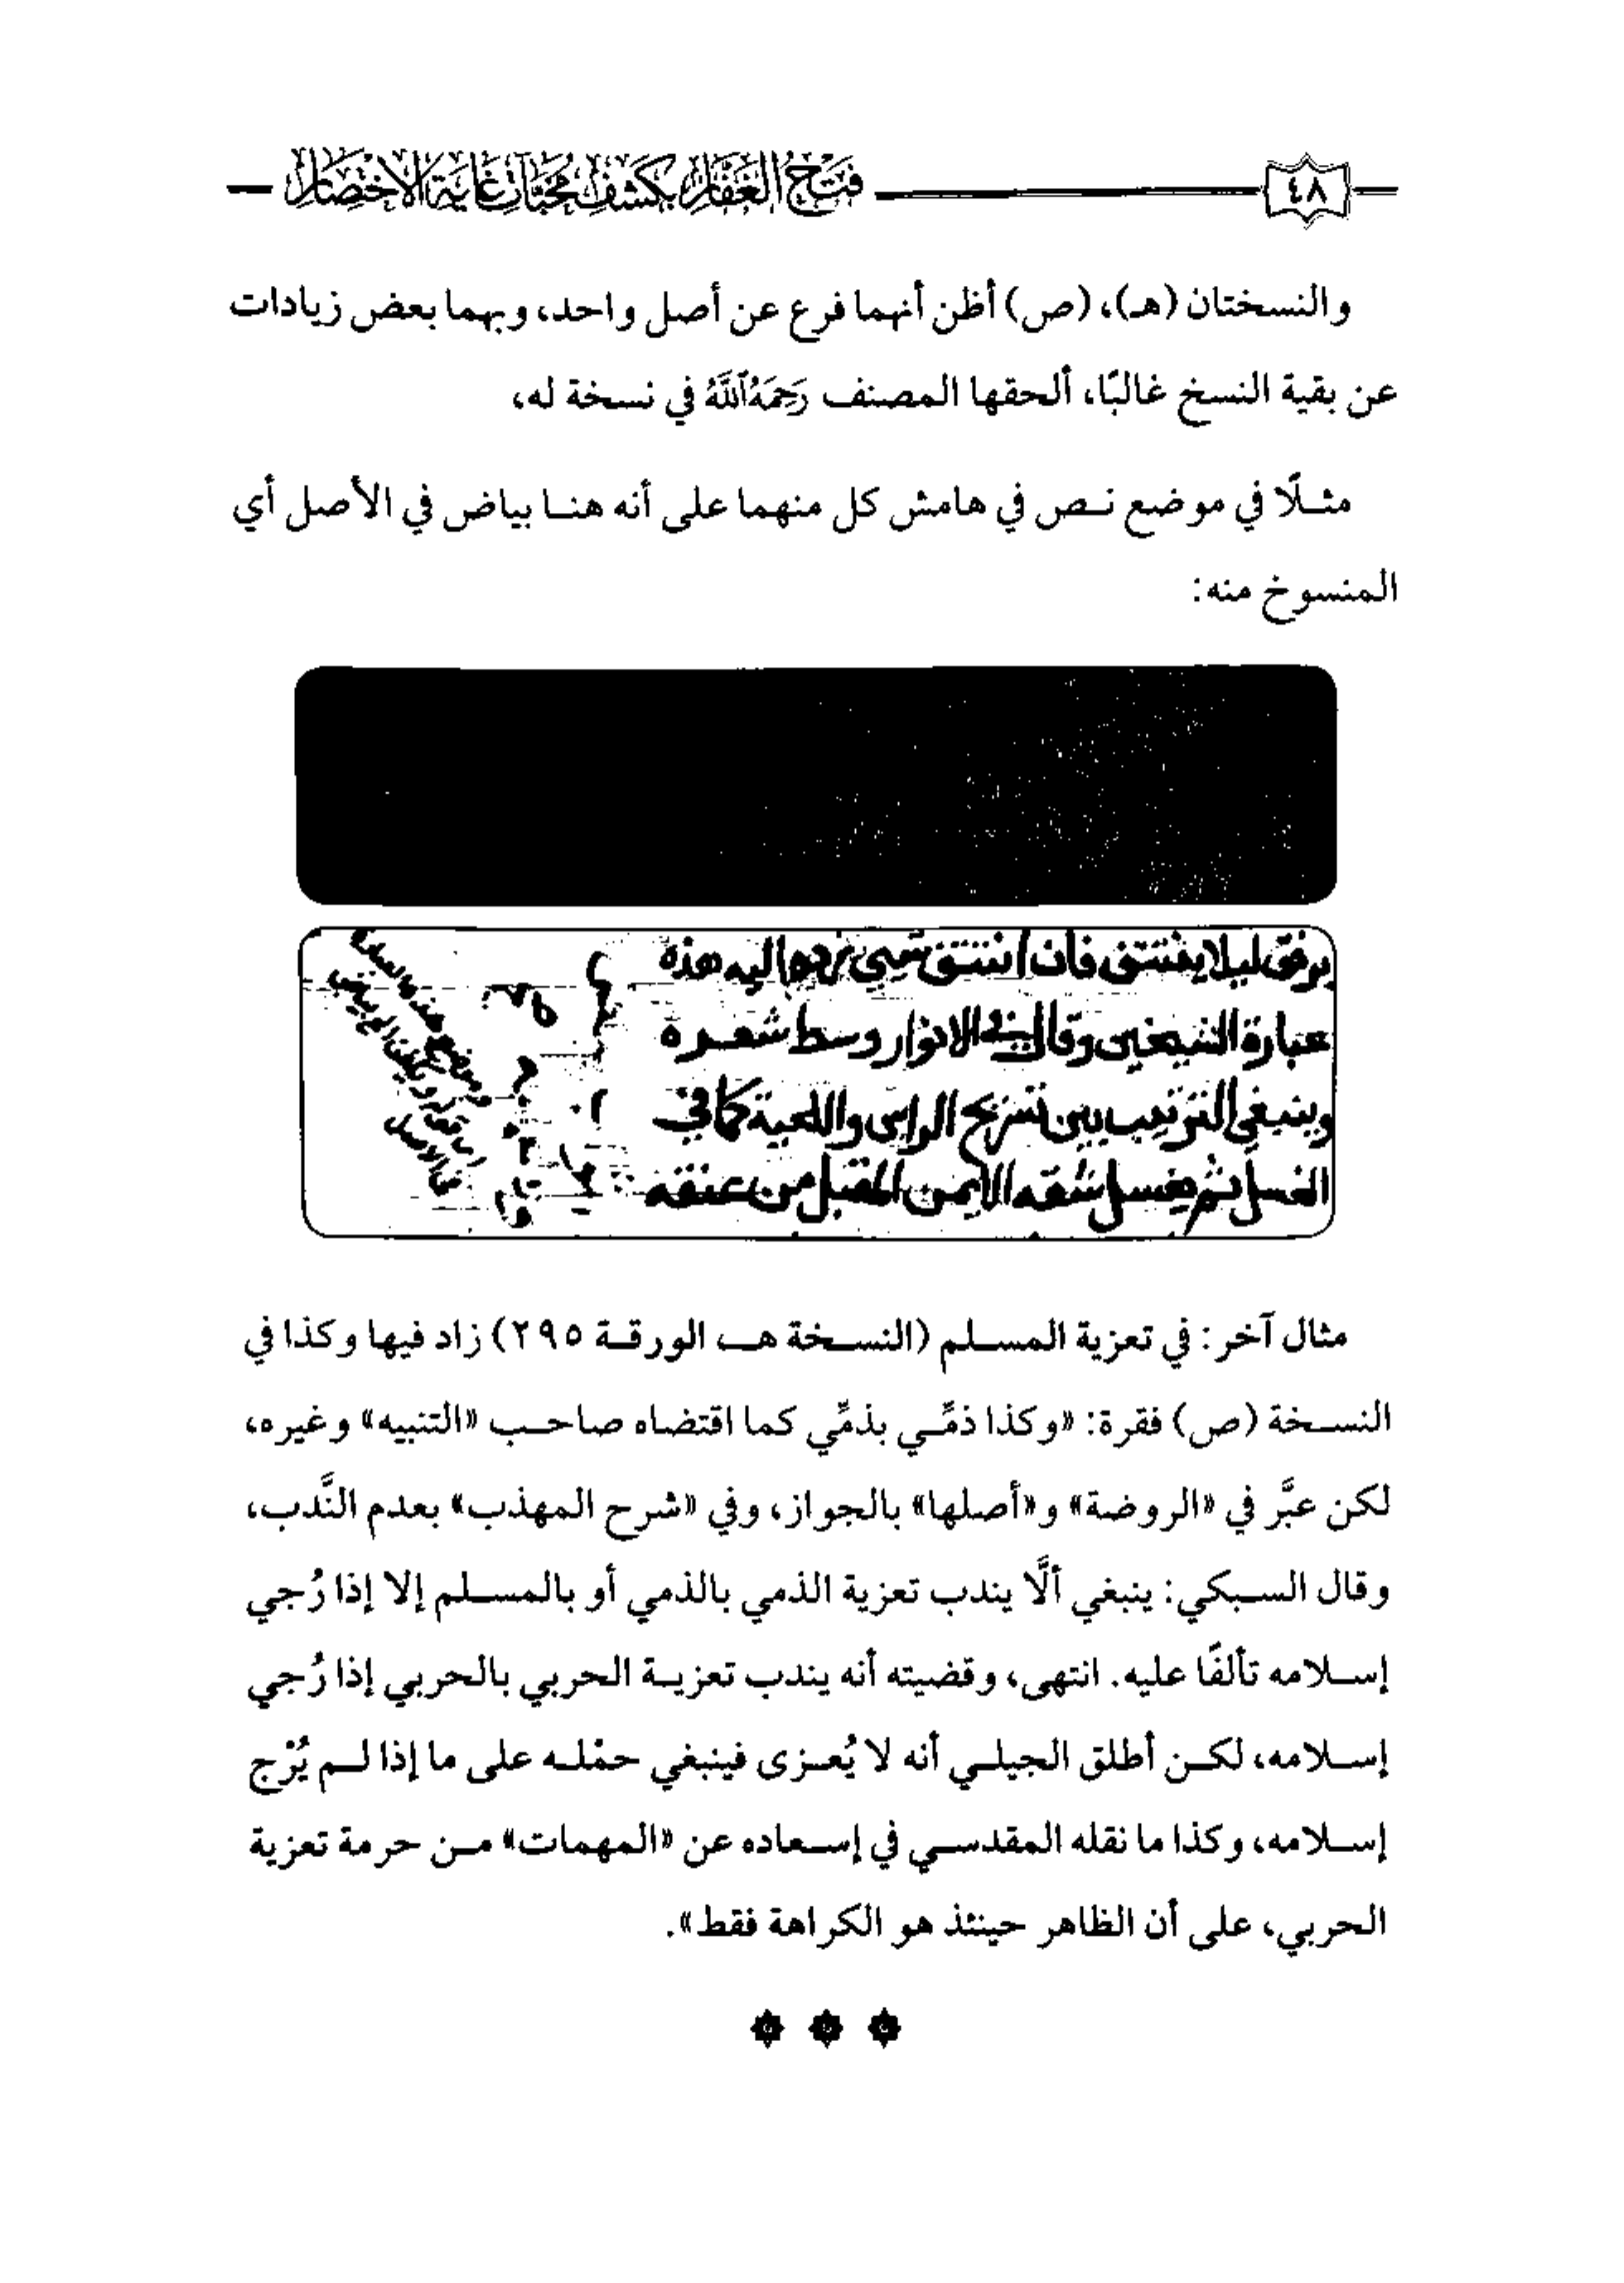 ٤٨
فتح الغفار بكشف مخبآت غاية الاختصار
والنسختان (هـ)، (ص) أظن أنهما فرع عن أصل واحد، وبهما بعض زيادات
عن بقية النسخ غالبًا، ألحقها المصنف رَحِمَهُ ٱللَّهُ في نسخة له،
مثلًا في موضع نص في هامش كل منهما على أنه هنا بياض في الأصل أي
المنسوخ منه:
برفق ليلا ينتتف فان انتتف شيئ ردها اليه هذه
عبارة الشيخين وقال في الانوار وسط شعره
وينبغي الترتيب بين تسريح الراس واللحية كما في
الغسل ثم يغسل شقه الايمن المقبل من عنقه
مثال آخر: في تعزية المسلم (النسخة هـ الورقة ٢٩٥) زاد فيها وكذا في
النسخة (ص) فقرة: «وكذا ذمِّي بذمِّي كما اقتضاه صاحب «التنبيه» وغيره،
لكن عبَّر في «الروضة» و«أصلها» بالجواز، وفي «شرح المهذب» بعدم النَّدب،
وقال السبكي: ينبغي ألَّا يندب تعزية الذمي بالذمي أو بالمسلم إلا إذا رُجي
إسلامه تألفًا عليه. انتهى، وقضيته أنه يندب تعزية الحربي بالحربي إذا رُجي
إسلامه، لكن أطلق الجيلي أنه لا يُعزى فينبغي حمْله على ما إذا لم يُرْج
إسلامه، وكذا ما نقله المقدسي في إسعاده عن «المهمات» من حرمة تعزية
الحربي، على أن الظاهر حينئذ هو الكراهة فقط».